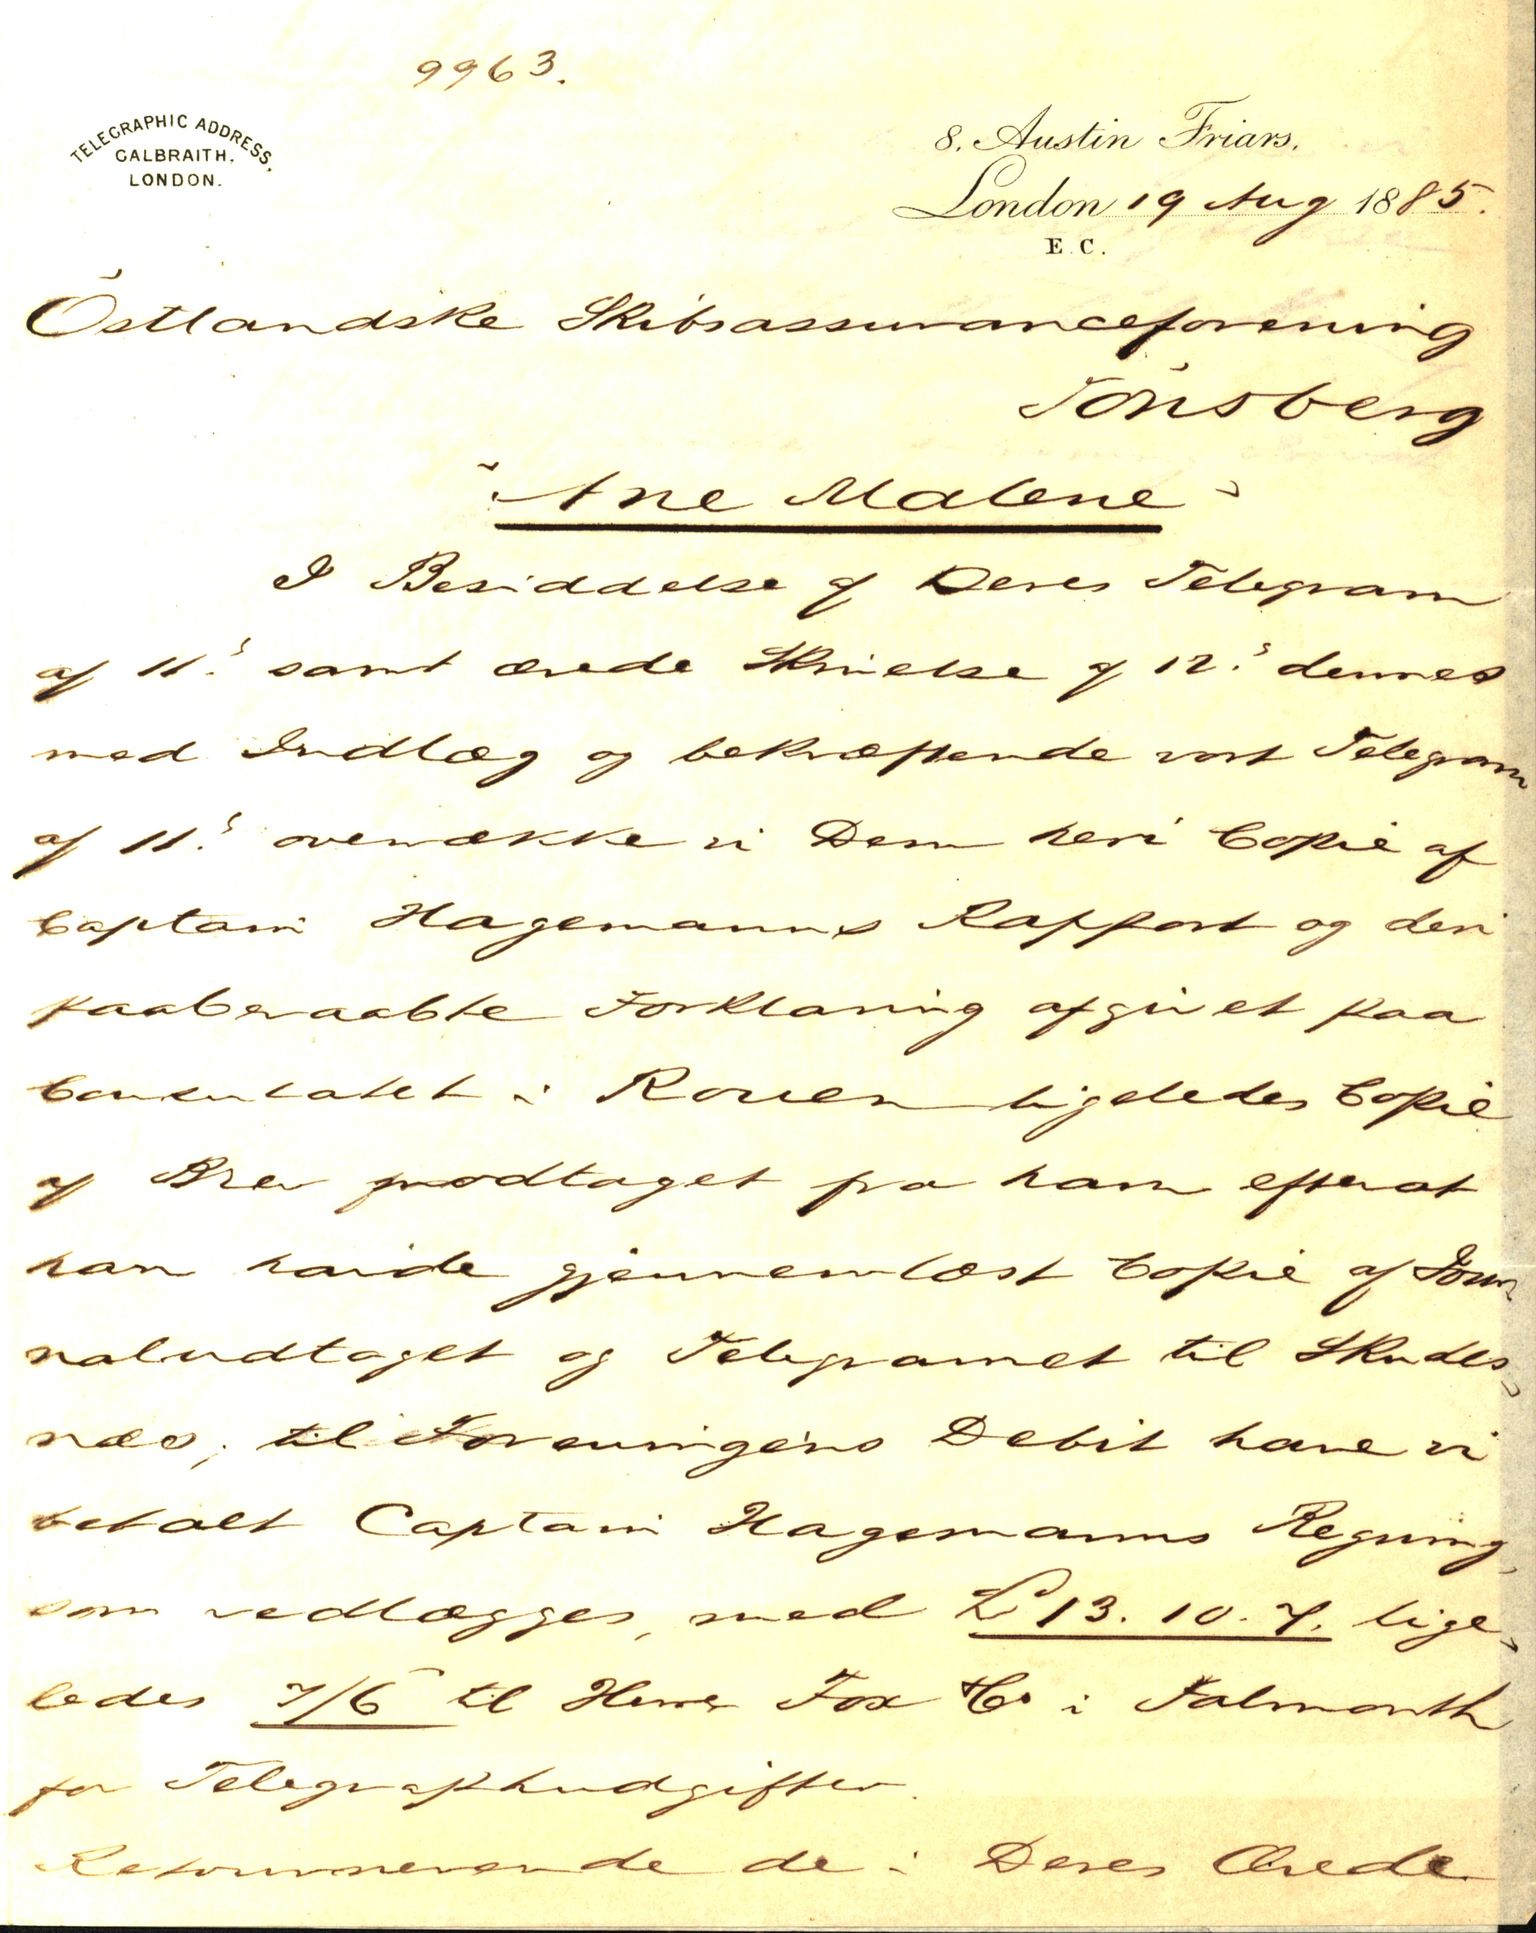 9963.
TELEGRAPHIC ADDRESS,
GALBRAITH.
LONDON.
8. Austin Friars.
London 19 Aug 1885.
E.C.
Östlandske Skibsassuranceforening
Tönsberg
"Ane Malene"
I Besiddelse af Deres Telegram
af 11.' samt ærede Skrivelse af 12.' dennes
med Indlæg og bekræftende vort Telegram
af 11.' oversække vi Dem heri Copie af
Captain Hagemanns Rapport og den
paaberaabte Forklaring afgivet paa
Consulatet i Rouen ligeledes Copie
af Brev modtaget fra ham efterat
han havde gjennemlæst Copie af Jour-
naludtoget og Telegramet til Skudes-
næs; til Foreningens Debit have vi
betalt Captain Hagemanns Regning,
som vedlægges, med £13.10.7. lige-
ledes 7/6 til Herrer Fox & Co i Falmouth
for Telegraphudgifter.
Retournerende de i Deres Ærede